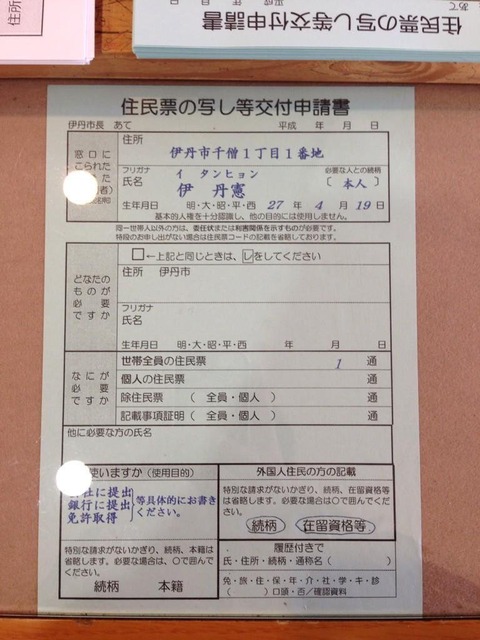 住所
住民票の写し等交付申請書
あて
平成 年 月 日
住民票の写し等交付申請書
伊丹市長 あて
平成 年 月 日
窓口に
こられた
住所
伊丹市千僧1丁目1番地
フリガナ
イ タンヒョン
氏名
伊 丹憲
必要な人との続柄
〔本人〕
生年月日 明・大・昭・平・西 27年 4月 19日
基本的人権を十分認識し、他の目的には使用しません。
同一世帯人以外の方は、委任状または利害関係を示すものが必要です。
特段のお申し出がない場合は住民票コードの記載を省略しております。
□←上記と同じときは、レをしてください
どなたの
ものが
必要
ですか
住所 伊丹市
フリガナ
氏名
生年月日 明・大・昭・平・西 年 月 日
なにが
必要
ですか
世帯全員の住民票 1 通
個人の住民票 通
除住民票 ( 全員・個人 ) 通
記載事項証明 ( 全員・個人 ) 通
他に必要な方の氏名
使いますか(使用目的)
社に提出
銀行に提出
免許取得
等具体的にお書き
ください。
特別な請求がないかぎり、続柄、本籍は
省略します。必要な場合は、○で囲んで
ください。
続柄 本籍
外国人住民の方の記載
特別な請求がないかぎり、続柄、在留資格等
は省略します。必要な場合は○で囲んで
ください。
続柄 在留資格等
履歴付きで
氏・住所・続柄・通称名( )
免・旅・住・保・年・介・社・学・キ・診
( )口頭・否/確認資料